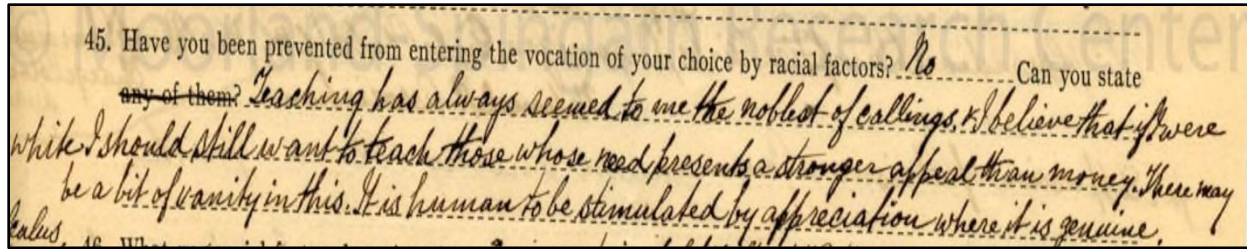 © Moorland-Spingarn Research Center
45. Have you been prevented from entering the vocation of your choice by racial factors? No Can you state
any of them? Teaching has always seemed to me the noblest of callings, & I believe that if I were
white I should still want to teach those whose need presents a stronger appeal than money. There may
be a bit of vanity in this. It is human to be stimulated by appreciation where it is genuine.
46. What